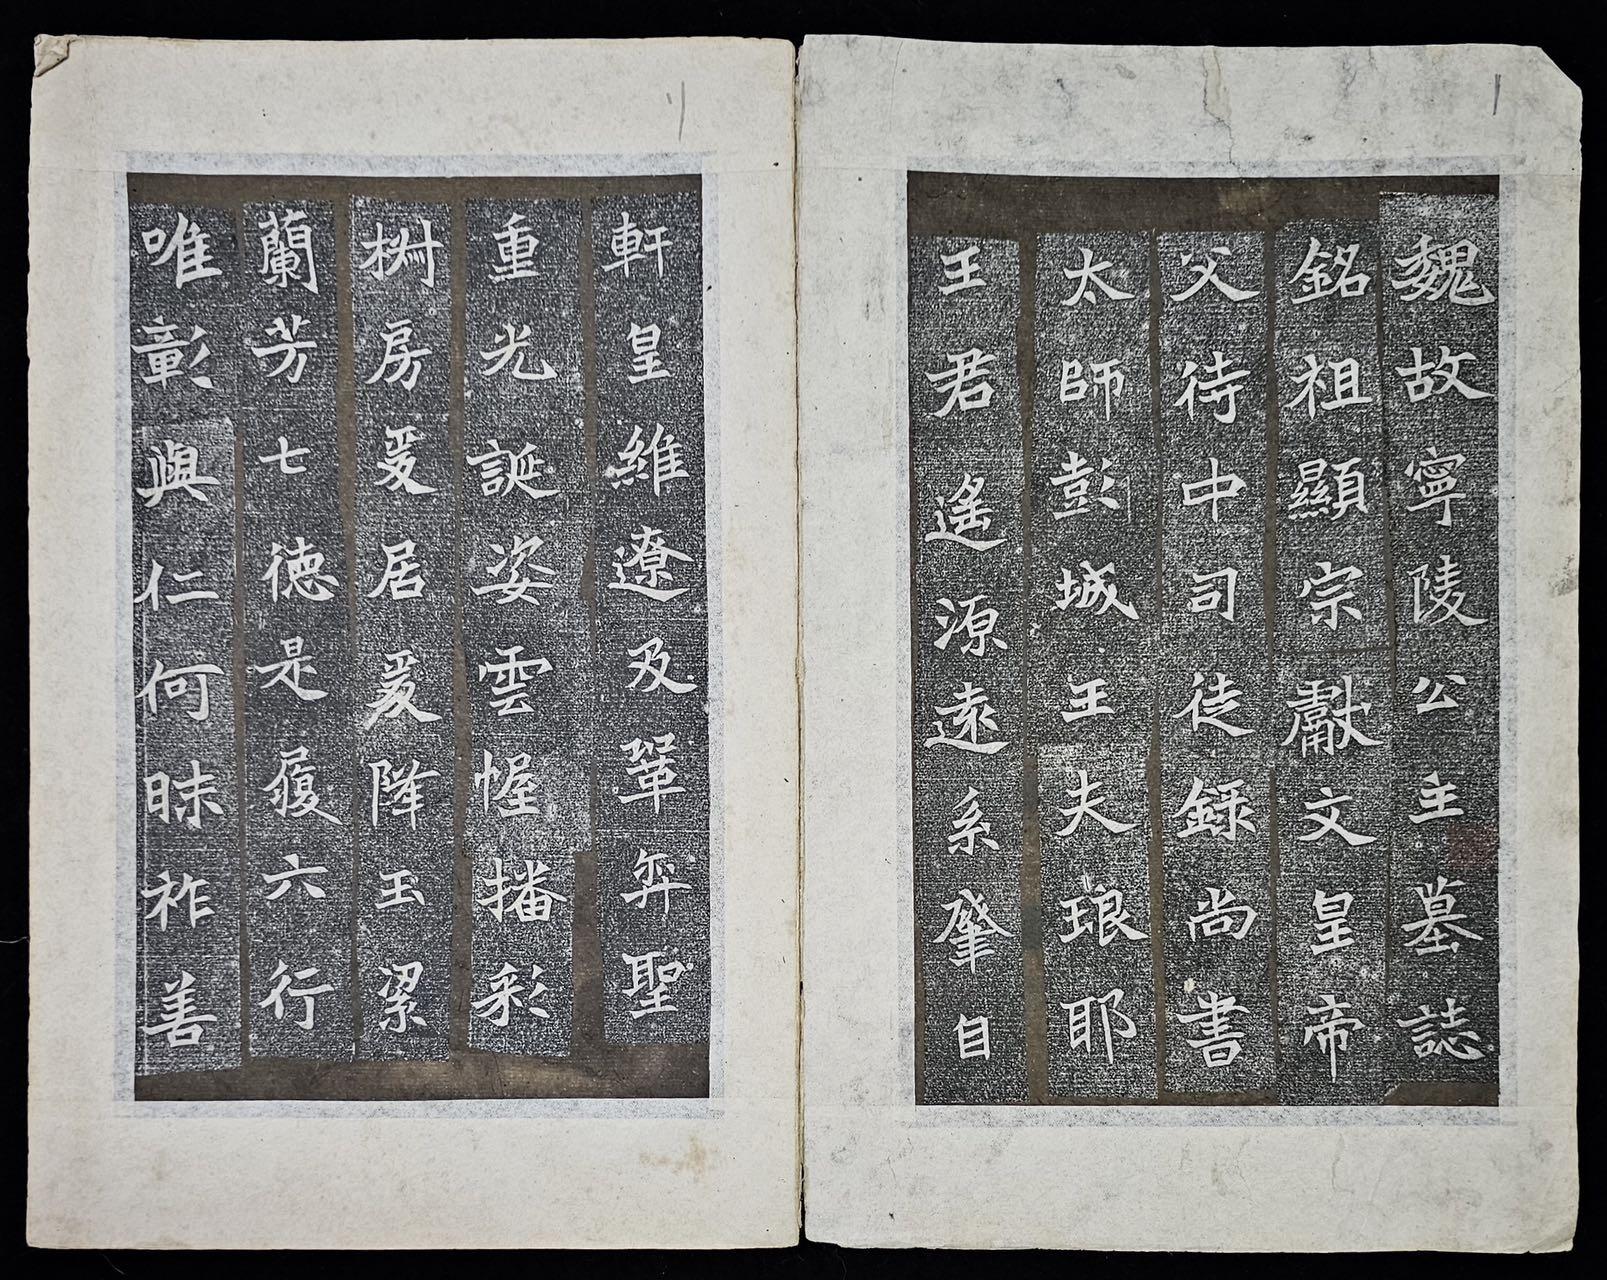 魏故寧陵公主墓誌
銘祖顯宗獻文皇帝
父侍中司徒録尚書
太師彭城王夫琅耶
王君遙源遠系肇自
軒皇維遼及鞏弈聖
重光誕姿雲幄播彩
椒房爰居爰降玉潔
蘭芳七德是履六行
唯彰與仁何昧祚善